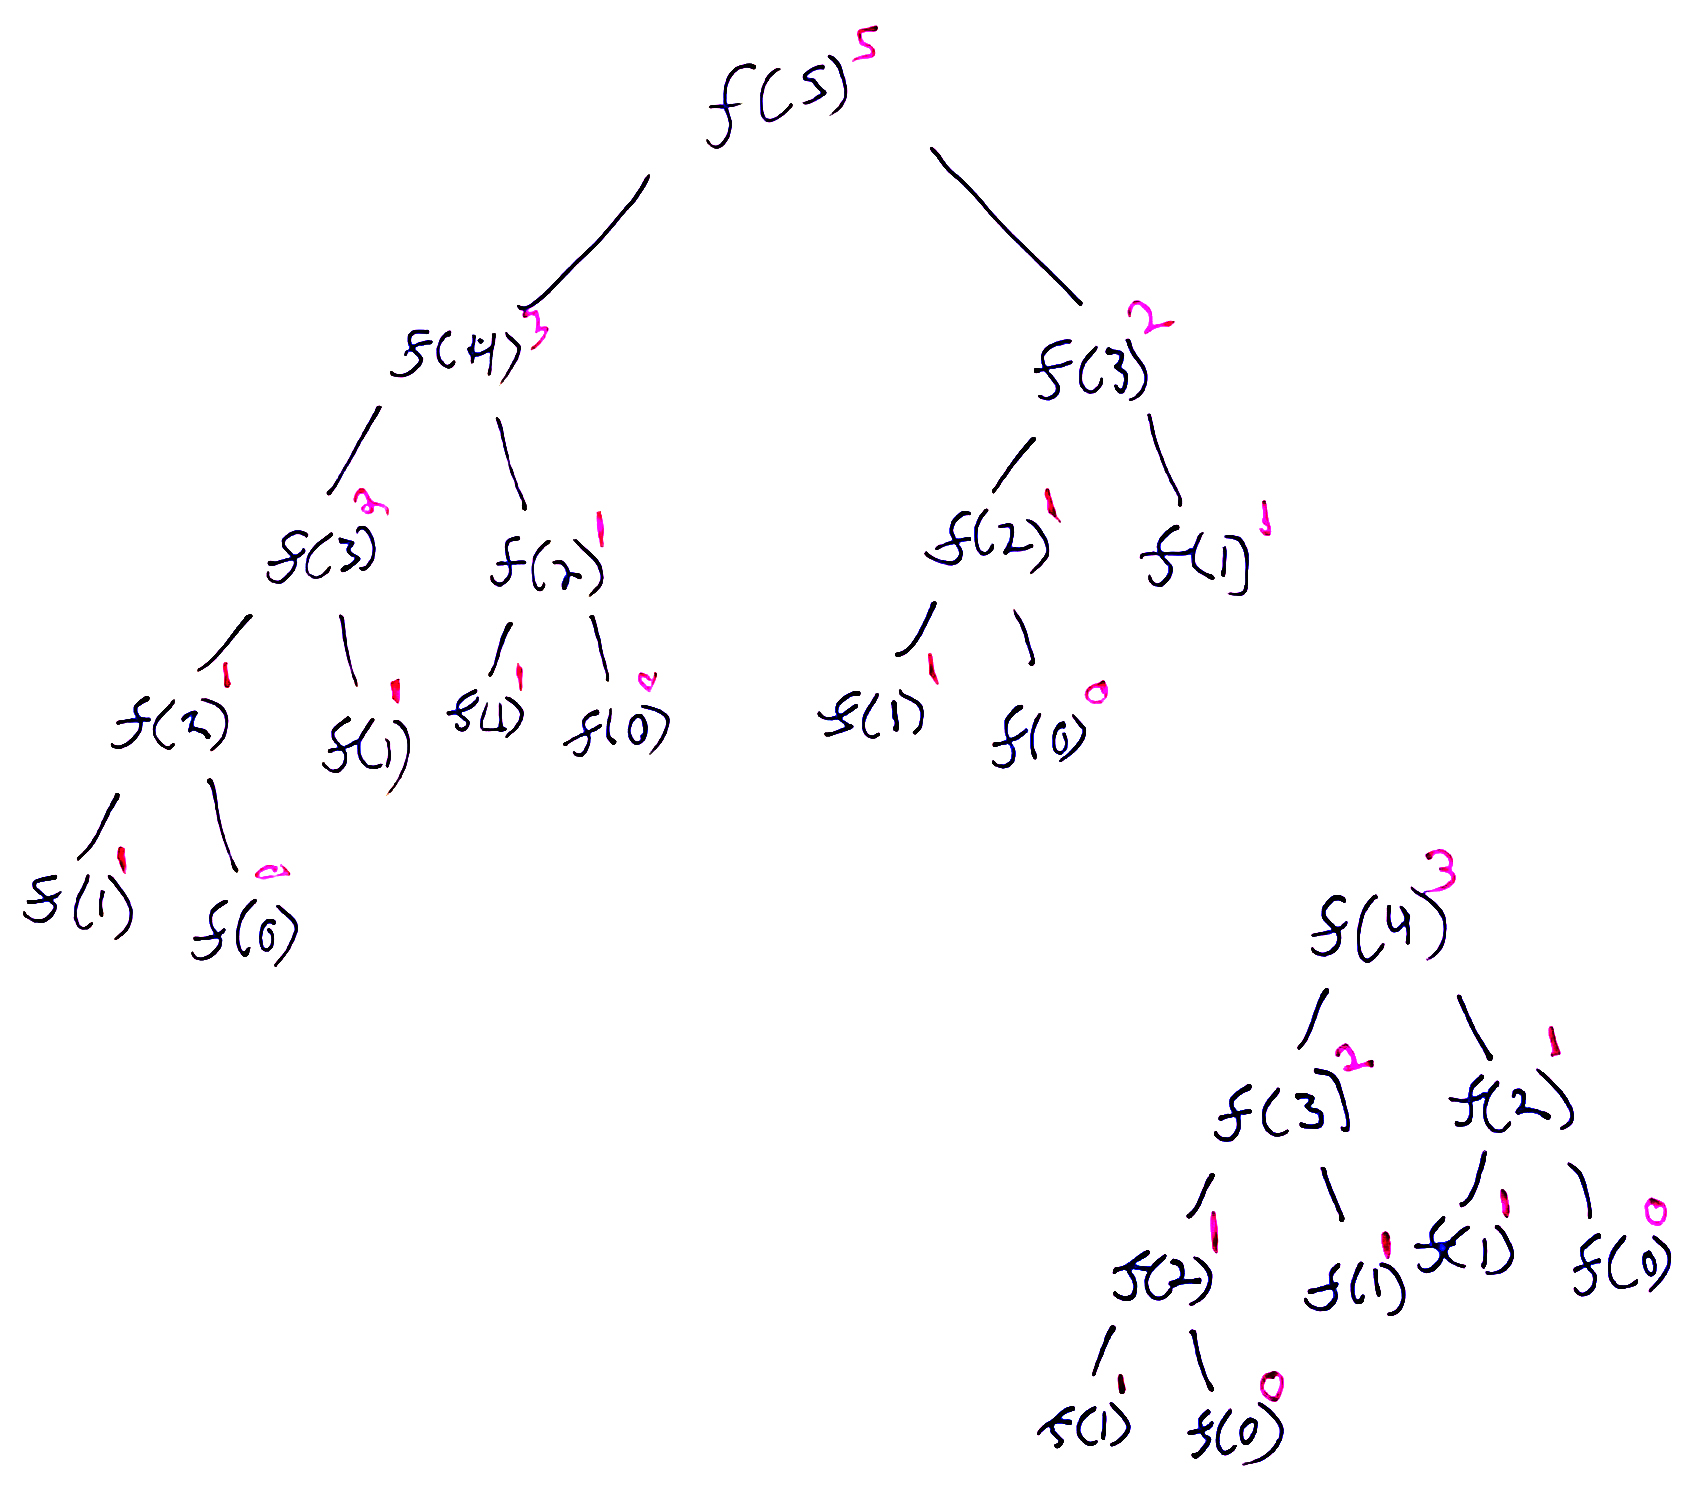 f(5) 5
f(4) 3 f(3) 2
f(3) 2 f(2) 1 f(2) 1 f(1) 1
f(2) 1 f(1) 1 f(1) 1 f(0) 0 f(1) 1 f(0) 0
f(1) 1 f(0) 0
f(4) 3
f(3) 2 f(2) 1
f(2) 1 f(1) 1 f(1) 1 f(0) 0
f(1) 1 f(0) 0